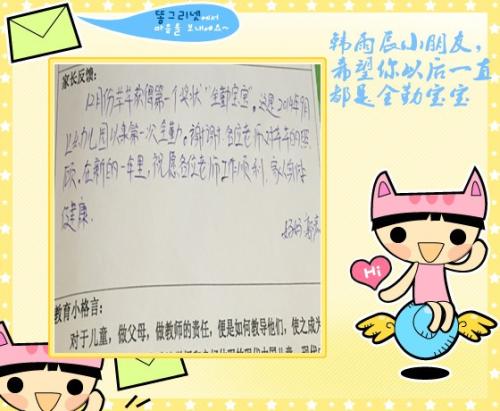 똥그리넷에서
마음을 보내세요~
韩雨辰小朋友,
希望你以后一直
都是全勤宝宝
家长反馈:
12月份羊羊获得第一个奖状"全勤宝宝",这是2014年9月
上幼儿园以来第一次全勤,谢谢各位老师对羊羊的照
顾。在新的一年里,祝愿各位老师工作顺利,家人身体
健康.
妈妈
Hi
教育小格言:
对于儿童,做父母,做教师的责任,便是如何教导他们,使之成为